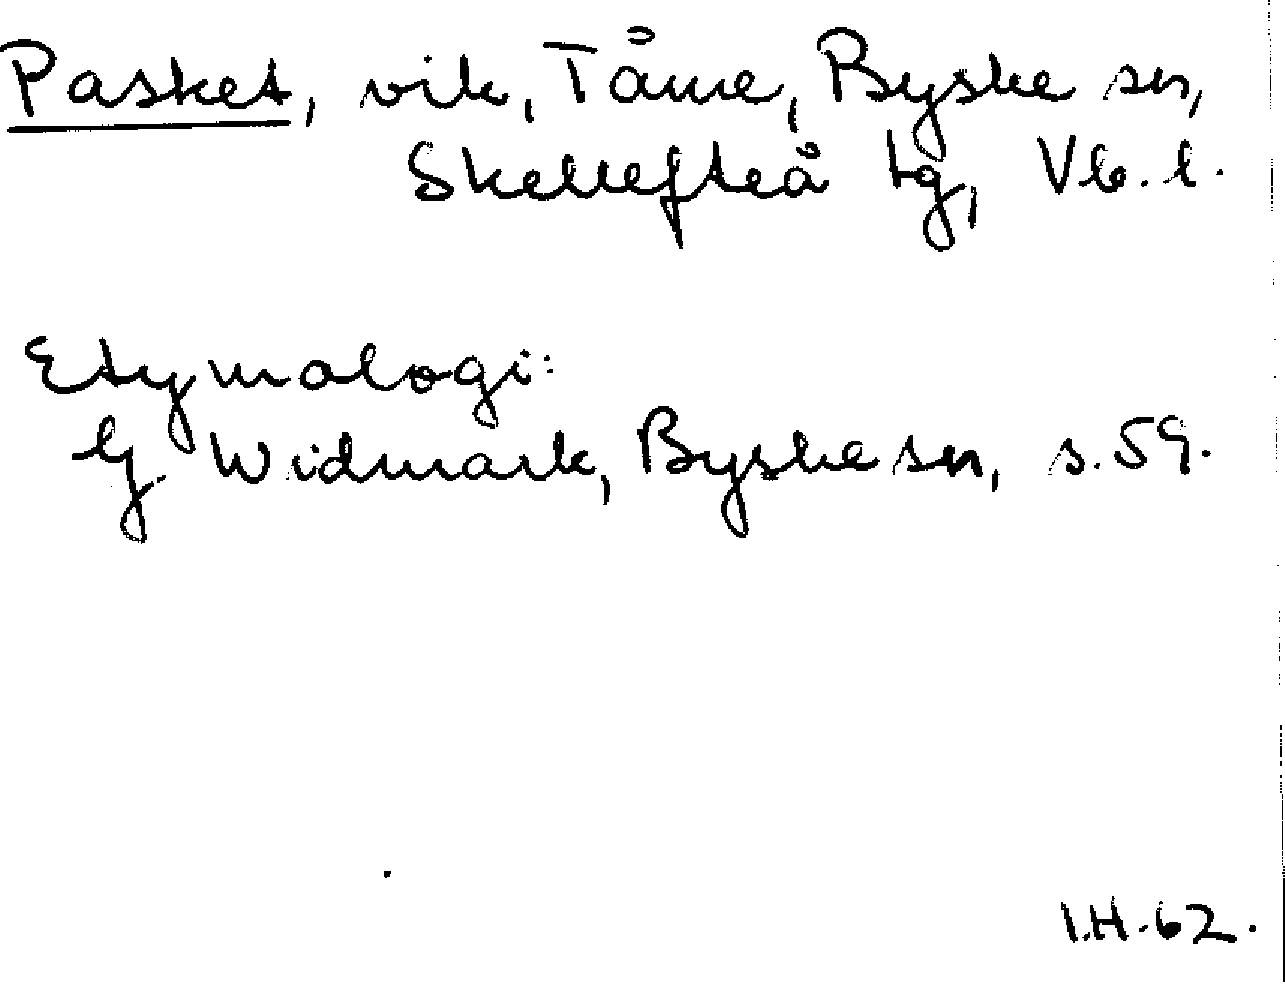 Pasket, vik, Tåme, Byske sn,
Skellefteå tg, Vb. l.
Etymologi:
G. Widmark, Byske sn, s. 59.
I.H. 62.